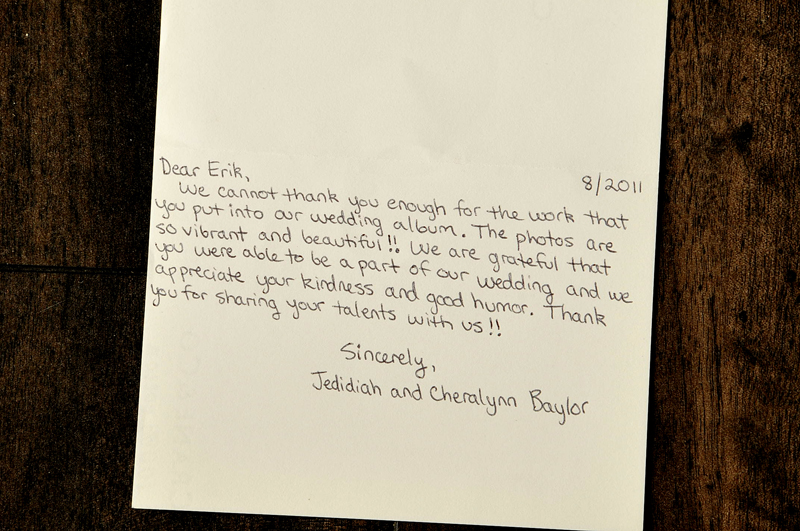 Dear Erik,
8/2011
We cannot thank you enough for the work that
you put into our wedding album. The photos are
so vibrant and beautiful!! We are grateful that
you were able to be a part of our wedding and we
appreciate your kindness and good humor. Thank
you for sharing your talents with us!!
Sincerely,
Jedidiah and Cheralynn Baylor